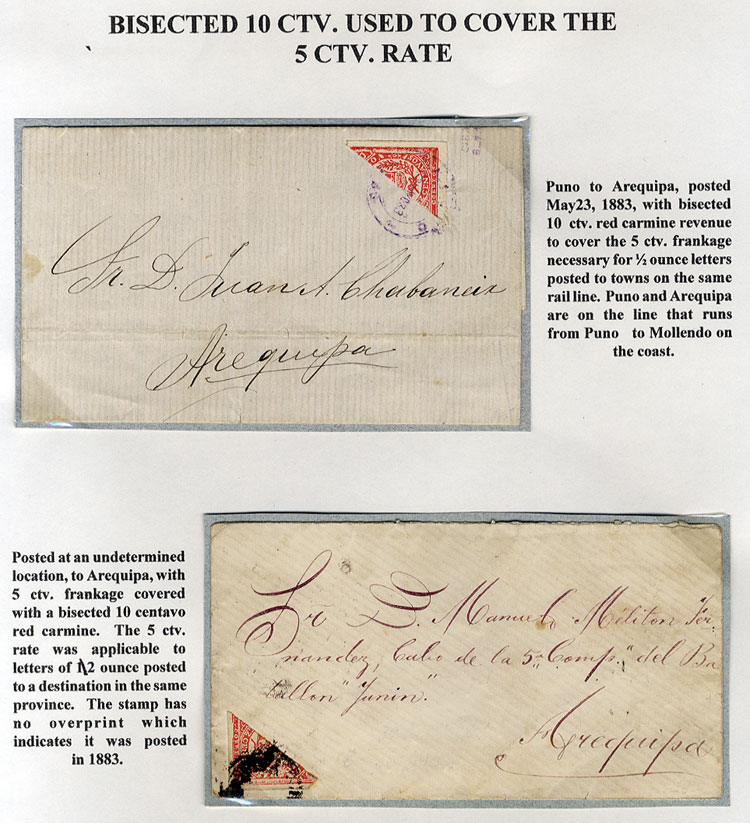 BISECTED 10 CTV. USED TO COVER THE
5 CTV. RATE
Sr. D. Juan A. Chabaneix
Arequipa
Puno to Arequipa, posted
May23, 1883, with bisected
10 ctv. red carmine revenue
to cover the 5 ctv. frankage
necessary for ½ ounce letters
posted to towns on the same
rail line. Puno and Arequipa
are on the line that runs
from Puno to Mollendo on
the coast.
Posted at an undetermined
location, to Arequipa, with
5 ctv. frankage covered
with a bisected 10 centavo
red carmine. The 5 ctv.
rate was applicable to
letters of 1\2 ounce posted
to a destination in the same
province. The stamp has
no overprint which
indicates it was posted
in 1883.
Sr D. Manuel Militon Fer
nandez, Cabo de la 5ª Comp.ª del Ba
tallon "Junin".
Arequipa